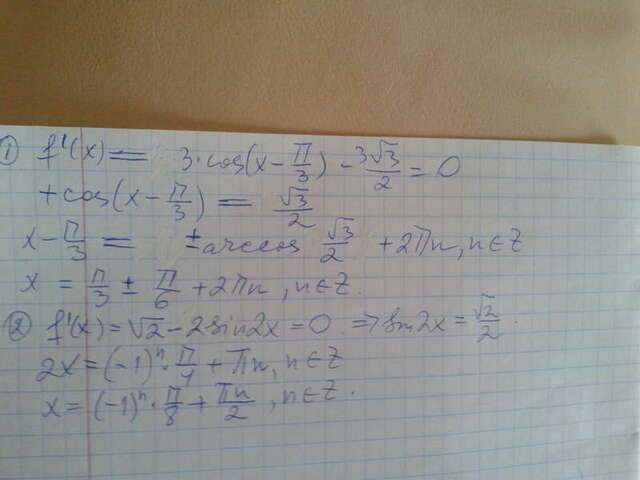 ① f'(x) = 3·cos(x - π/3) - 3√3/2 = 0
+cos(x - π/3) = √3/2
x - π/3 = ±arccos √3/2 + 2πn, n∈Z
x = π/3 ± π/6 + 2πn, n∈Z.
② f'(x) = √2 - 2sin2x = 0. ⇒ sin2x = √2/2.
2x = (-1)ⁿ · π/4 + πn, n∈Z
x = (-1)ⁿ · π/8 + πn/2, n∈Z.